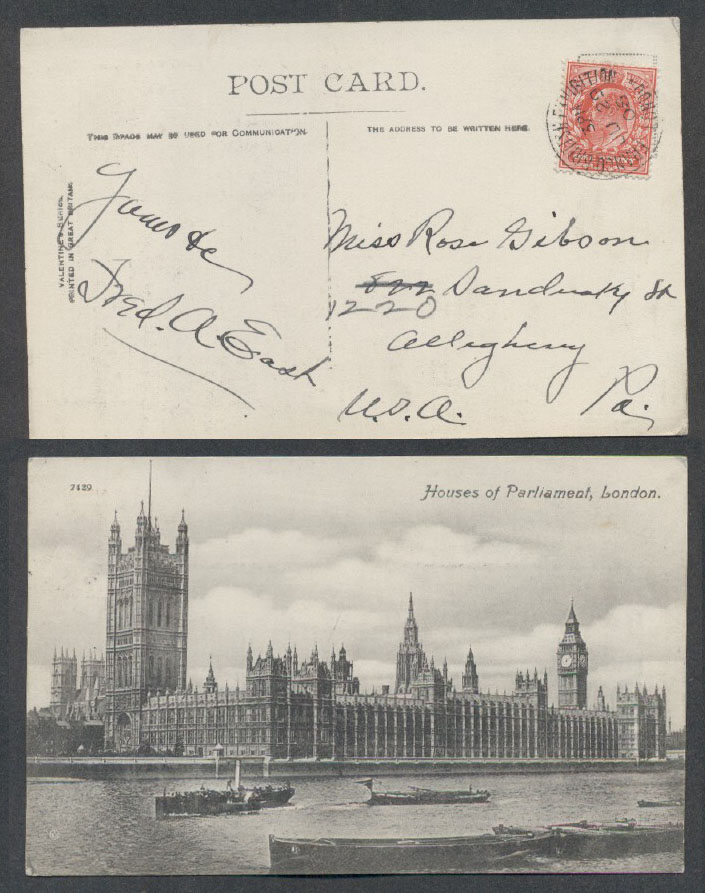 POST CARD.
THIS SPACE MAY BE USED FOR COMMUNICATION.
THE ADDRESS TO BE WRITTEN HERE.
VALENTINE'S SERIES.
PRINTED IN GREAT BRITAIN.
Fred. A. East
Miss Rose Gibson
1220 Sandusky St
Allegheny
U.S.A. Pa.
7129
Houses of Parliament, London.